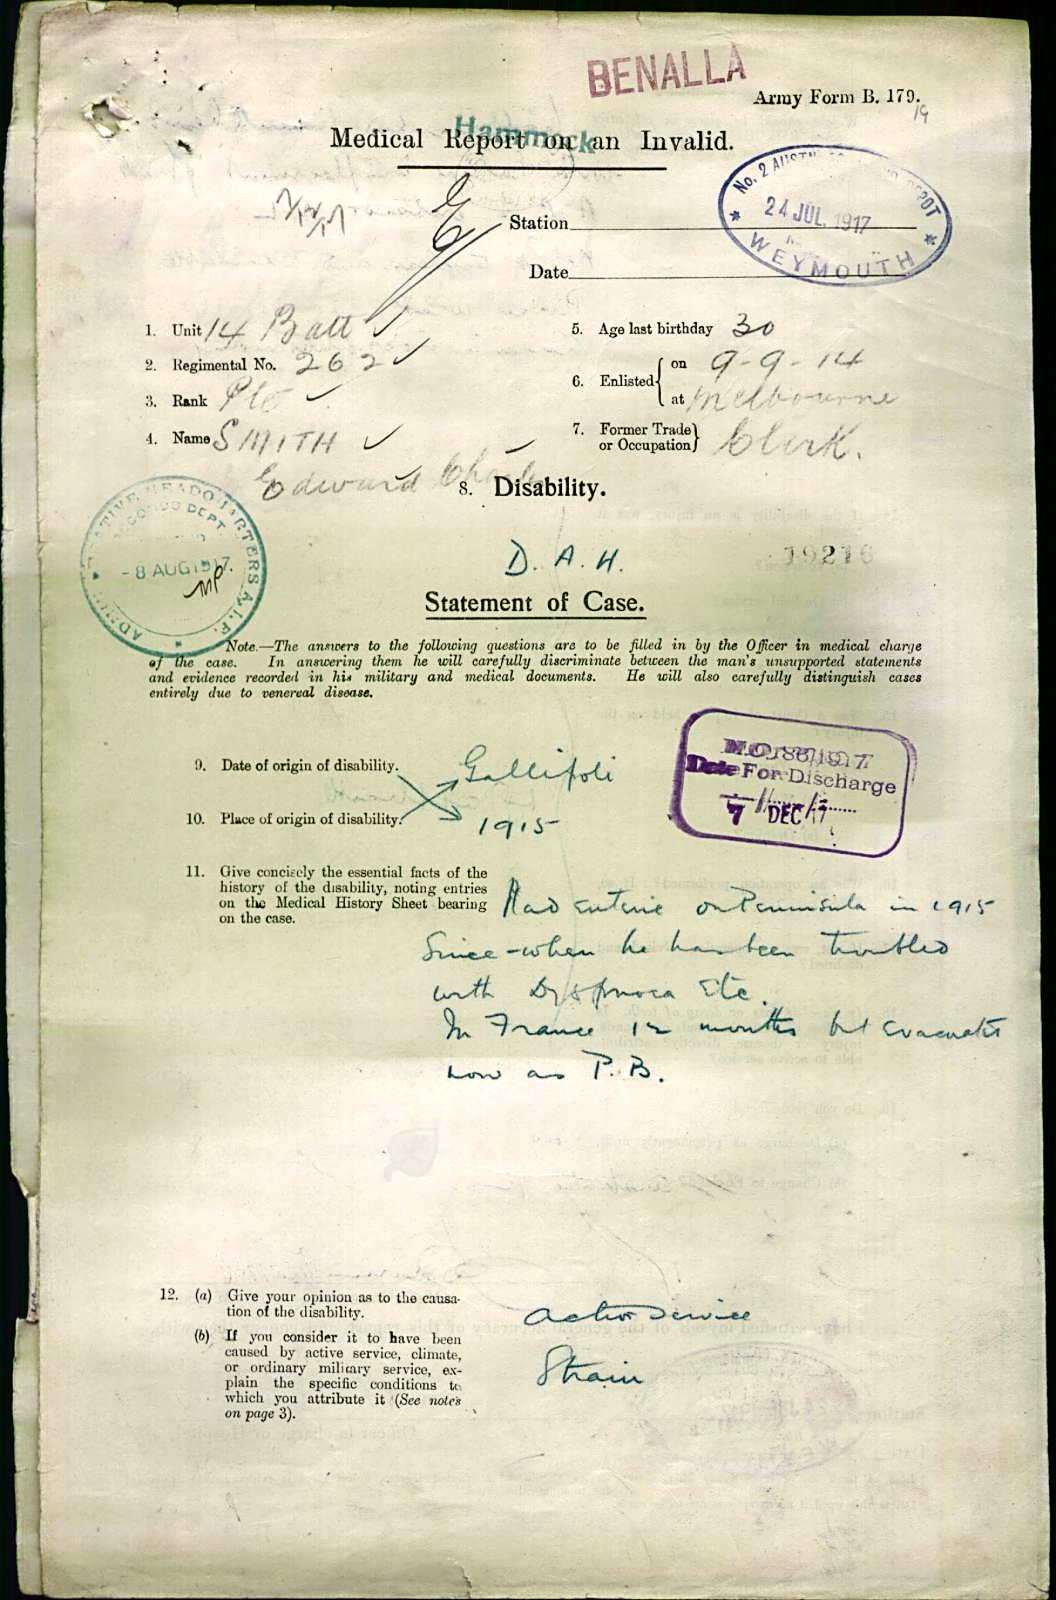 BENALLA
Army Form B. 179.
19
Hammock
Medical Report on an Invalid.
No. 2 AUSTN. DEPOT
24 JUL. 1917
WEYMOUTH
Station
Date
1. Unit 14 Batt ✓
2. Regimental No. 262 ✓
3. Rank Pte ✓
4. Name SMITH ✓
Edward Charles
5. Age last birthday 30
6. Enlisted { on 9-9-14
at Melbourne
7. Former Trade or Occupation } Clerk.
8. Disability.
ADMINISTRATIVE HEADQUARTERS A.I.F.
RECORDS DEPT
-8 AUG 1917.
D. A. H.
19216
Statement of Case.
Note.—The answers to the following questions are to be filled in by the Officer in medical charge
of the case. In answering them he will carefully discriminate between the man's unsupported statements
and evidence recorded in his military and medical documents. He will also carefully distinguish cases
entirely due to venereal disease.
9. Date of origin of disability. Gallipoli
10. Place of origin of disability. 1915
Date For Discharge
7 DEC 17
11. Give concisely the essential facts of the
history of the disability, noting entries
on the Medical History Sheet bearing
on the case.
Had enteric on Peninsula in 1915
Since when he has been troubled
with Dyspnoea Etc.
In France 12 months but evacuated
now as P.B.
12. (a) Give your opinion as to the causa-
tion of the disability.
Active Service
(b) If you consider it to have been
caused by active service, climate,
or ordinary military service, ex-
plain the specific conditions to
which you attribute it (See notes
on page 3).
Strain